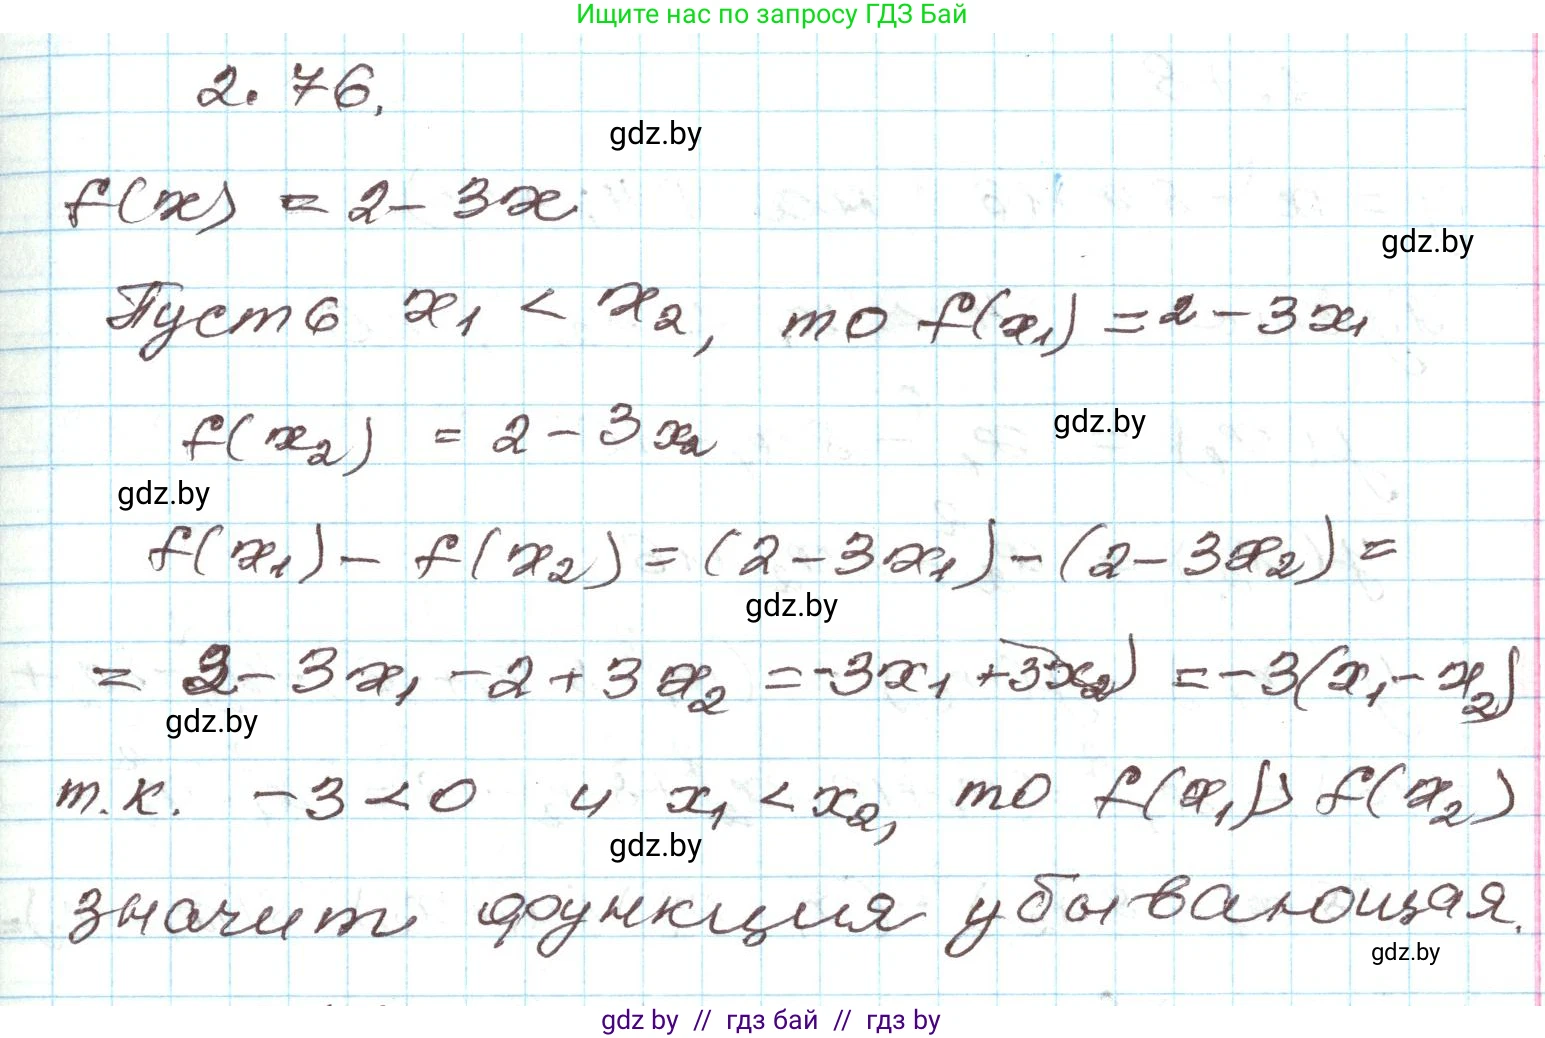 Ищите нас по запросу ГДЗ Бай
2.76.
gdz.by
f(x) = 2 - 3x
gdz.by
Пусть x₁ < x₂, то f(x₁) = 2 - 3x₁
f(x₂) = 2 - 3x₂
gdz.by
gdz.by
f(x₁) - f(x₂) = (2 - 3x₁) - (2 - 3x₂) =
gdz.by
= 2 - 3x₁ - 2 + 3x₂ = -3x₁ + 3x₂) = -3(x₁ - x₂)
gdz.by
т.к. -3 < 0 и x₁ < x₂, то f(x₁) > f(x₂)
gdz.by
значит функция убывающая.
gdz.by
gdz by // гдз бай // гдз by